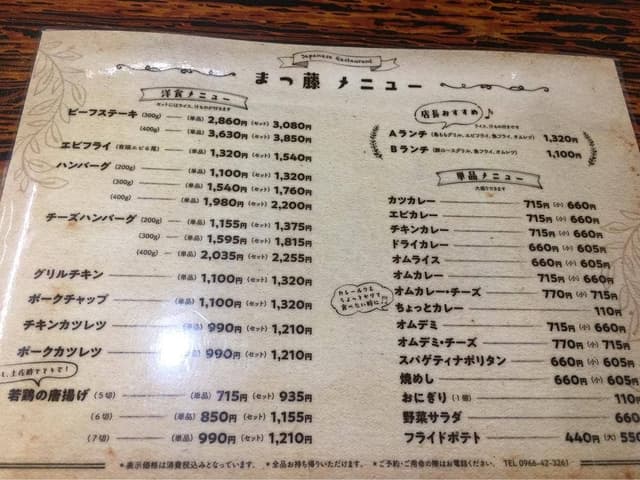 Japanese Restaurant
まつ藤 メニュー
洋食メニュー
セットにはライス、汁もの付きます
ビーフステーキ (300g) (単品) 2,860円 (セット) 3,080円
(400g) (単品) 3,630円 (セット) 3,850円
エビフライ (有頭エビ6尾) (単品) 1,320円 (セット) 1,540円
ハンバーグ (200g) (単品) 1,100円 (セット) 1,320円
(300g) (単品) 1,540円 (セット) 1,760円
(400g) (単品) 1,980円 (セット) 2,200円
チーズハンバーグ (200g) (単品) 1,155円 (セット) 1,375円
(300g) (単品) 1,595円 (セット) 1,815円
(400g) (単品) 2,035円 (セット) 2,255円
グリルチキン (単品) 1,100円 (セット) 1,320円
ポークチャップ (単品) 1,100円 (セット) 1,320円
チキンカツレツ (単品) 990円 (セット) 1,210円
ポークカツレツ (単品) 990円 (セット) 1,210円
若鶏の唐揚げ (5切) (単品) 715円 (セット) 935円
(6切) (単品) 850円 (セット) 1,155円
(7切) (単品) 990円 (セット) 1,210円
店長おすすめ♪
ライス、汁もの付きです
Aランチ (鳥ももグリル、エビフライ、魚フライ、オムレツ) 1,320円
Bランチ (豚ロースグリル、魚フライ、オムレツ) 1,100円
単品メニュー
大盛りできます
カツカレー 715円 (小) 660円
エビカレー 715円 (小) 660円
チキンカレー 715円 (小) 660円
ドライカレー 660円 (小) 605円
オムライス 660円 (小) 605円
オムカレー 715円 (小) 660円
オムカレー・チーズ 770円 (小) 715円
カレールウを
ちょっとかけて
食べたい時に♪
ちょっとカレー 110円
オムデミ 715円 (小) 660
オムデミ・チーズ 770円 (小) 715
スパゲティナポリタン 660円 (小) 605
焼めし 660円 (小) 605
おにぎり (1個) 110
野菜サラダ 660
フライドポテト 440円 (大) 550
＊表示価格は消費税込みとなっています。 ＊全品お持ち帰りいただけます。 ＊ご予約・ご用命の際はお電話ください。 TEL 0966-42-3261